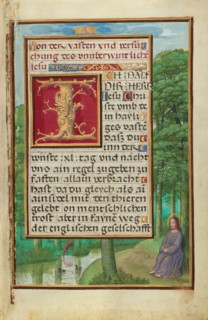 Von der vasten und versu
chung des unüberwintlichē
Jesu
ICH DANCK
DIR HERR
Jesu Chri
ste umb de
in hayli
ge vaste
dass du
inn der
wüste .xl. tag und nacht
uns ain regel zugeben zu
fasten allain verbracht
hast da du gleych als ain
ainsidel mit den thieren
gelebt on mentschlichen
trost aber in kayne weg
der englischen geselschafft